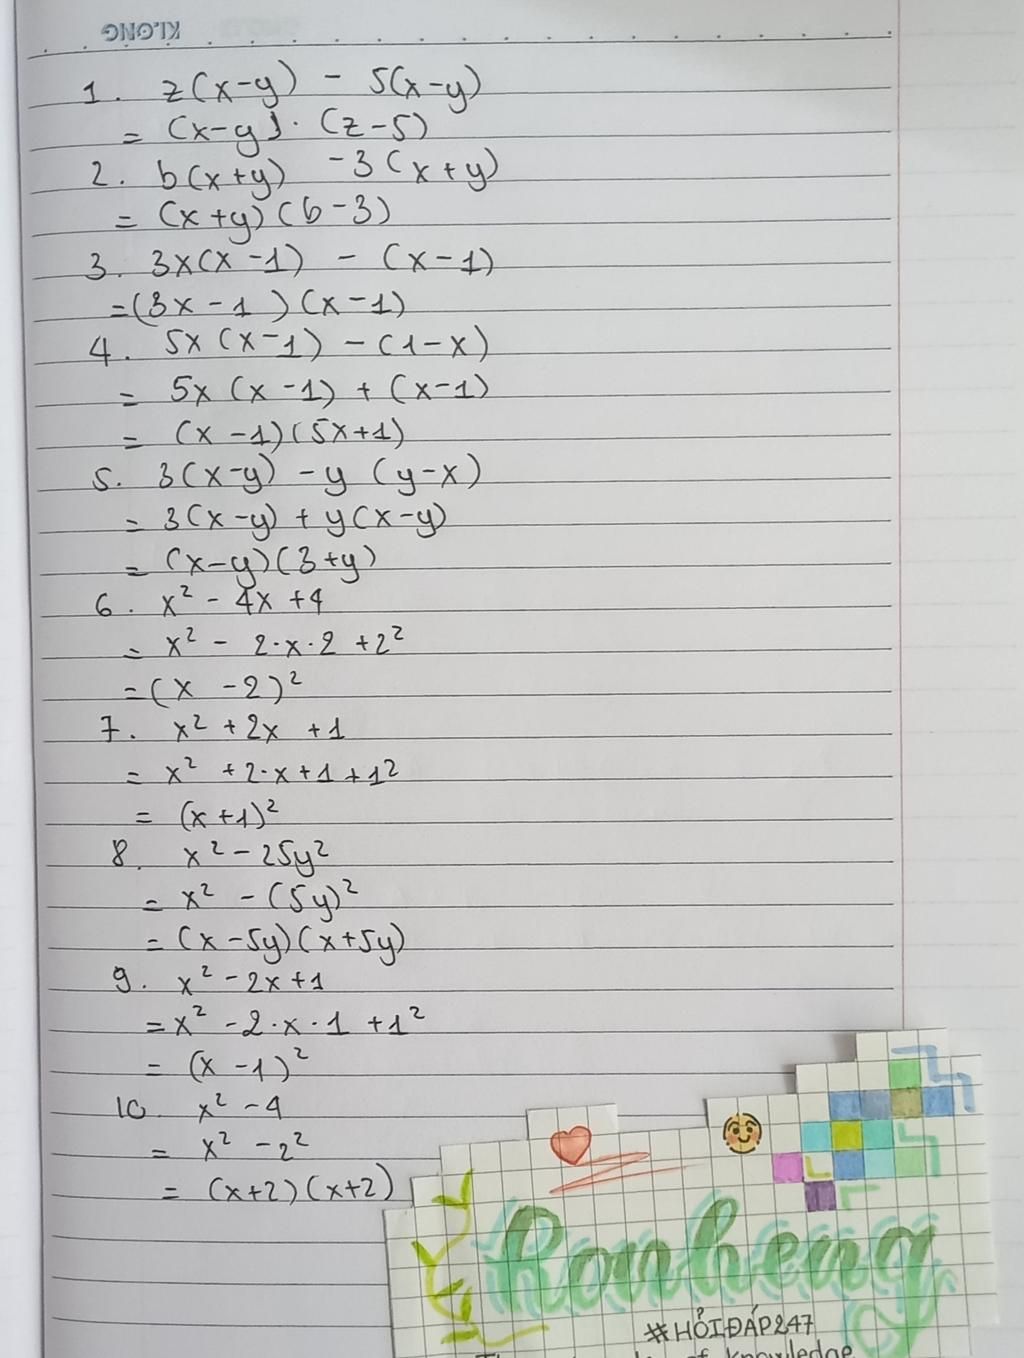 KLONG
1. z(x-y) - 5(x-y)
= (x-y). (z-5)
2. b(x+y) -3(x+y)
= (x+y)(b-3)
3. 3x(x-1) - (x-1)
=(3x-1)(x-1)
4. 5x(x-1) -(1-x)
= 5x(x-1) + (x-1)
= (x-1)(5x+1)
5. 3(x-y) -y (y-x)
= 3(x-y) + y(x-y)
= (x-y)(3+y)
6. x² - 4x +4
= x² - 2.x.2 +2²
=(x -2)²
7. x² +2x +1
= x² +2.x+1+1²
= (x+1)²
8. x²-25y²
= x² -(5y)²
= (x-5y)(x+5y)
9. x²-2x+1
=x² -2.x.1 +1²
= (x-1)²
10 x²-4
= x² -2²
= (x+2)(x+2)
Ronheng
#HỎIĐÁP247
of knowledge